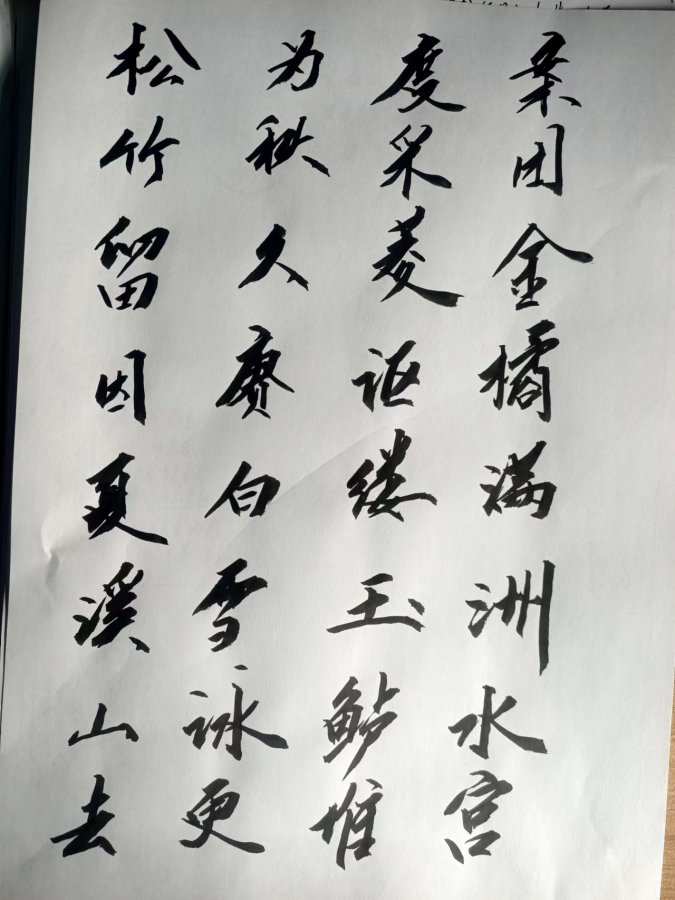 松竹留因夏溪山去
为秋久赓白雪咏更
度采菱讴缕玉鲈堆
案团金橘满洲水宫